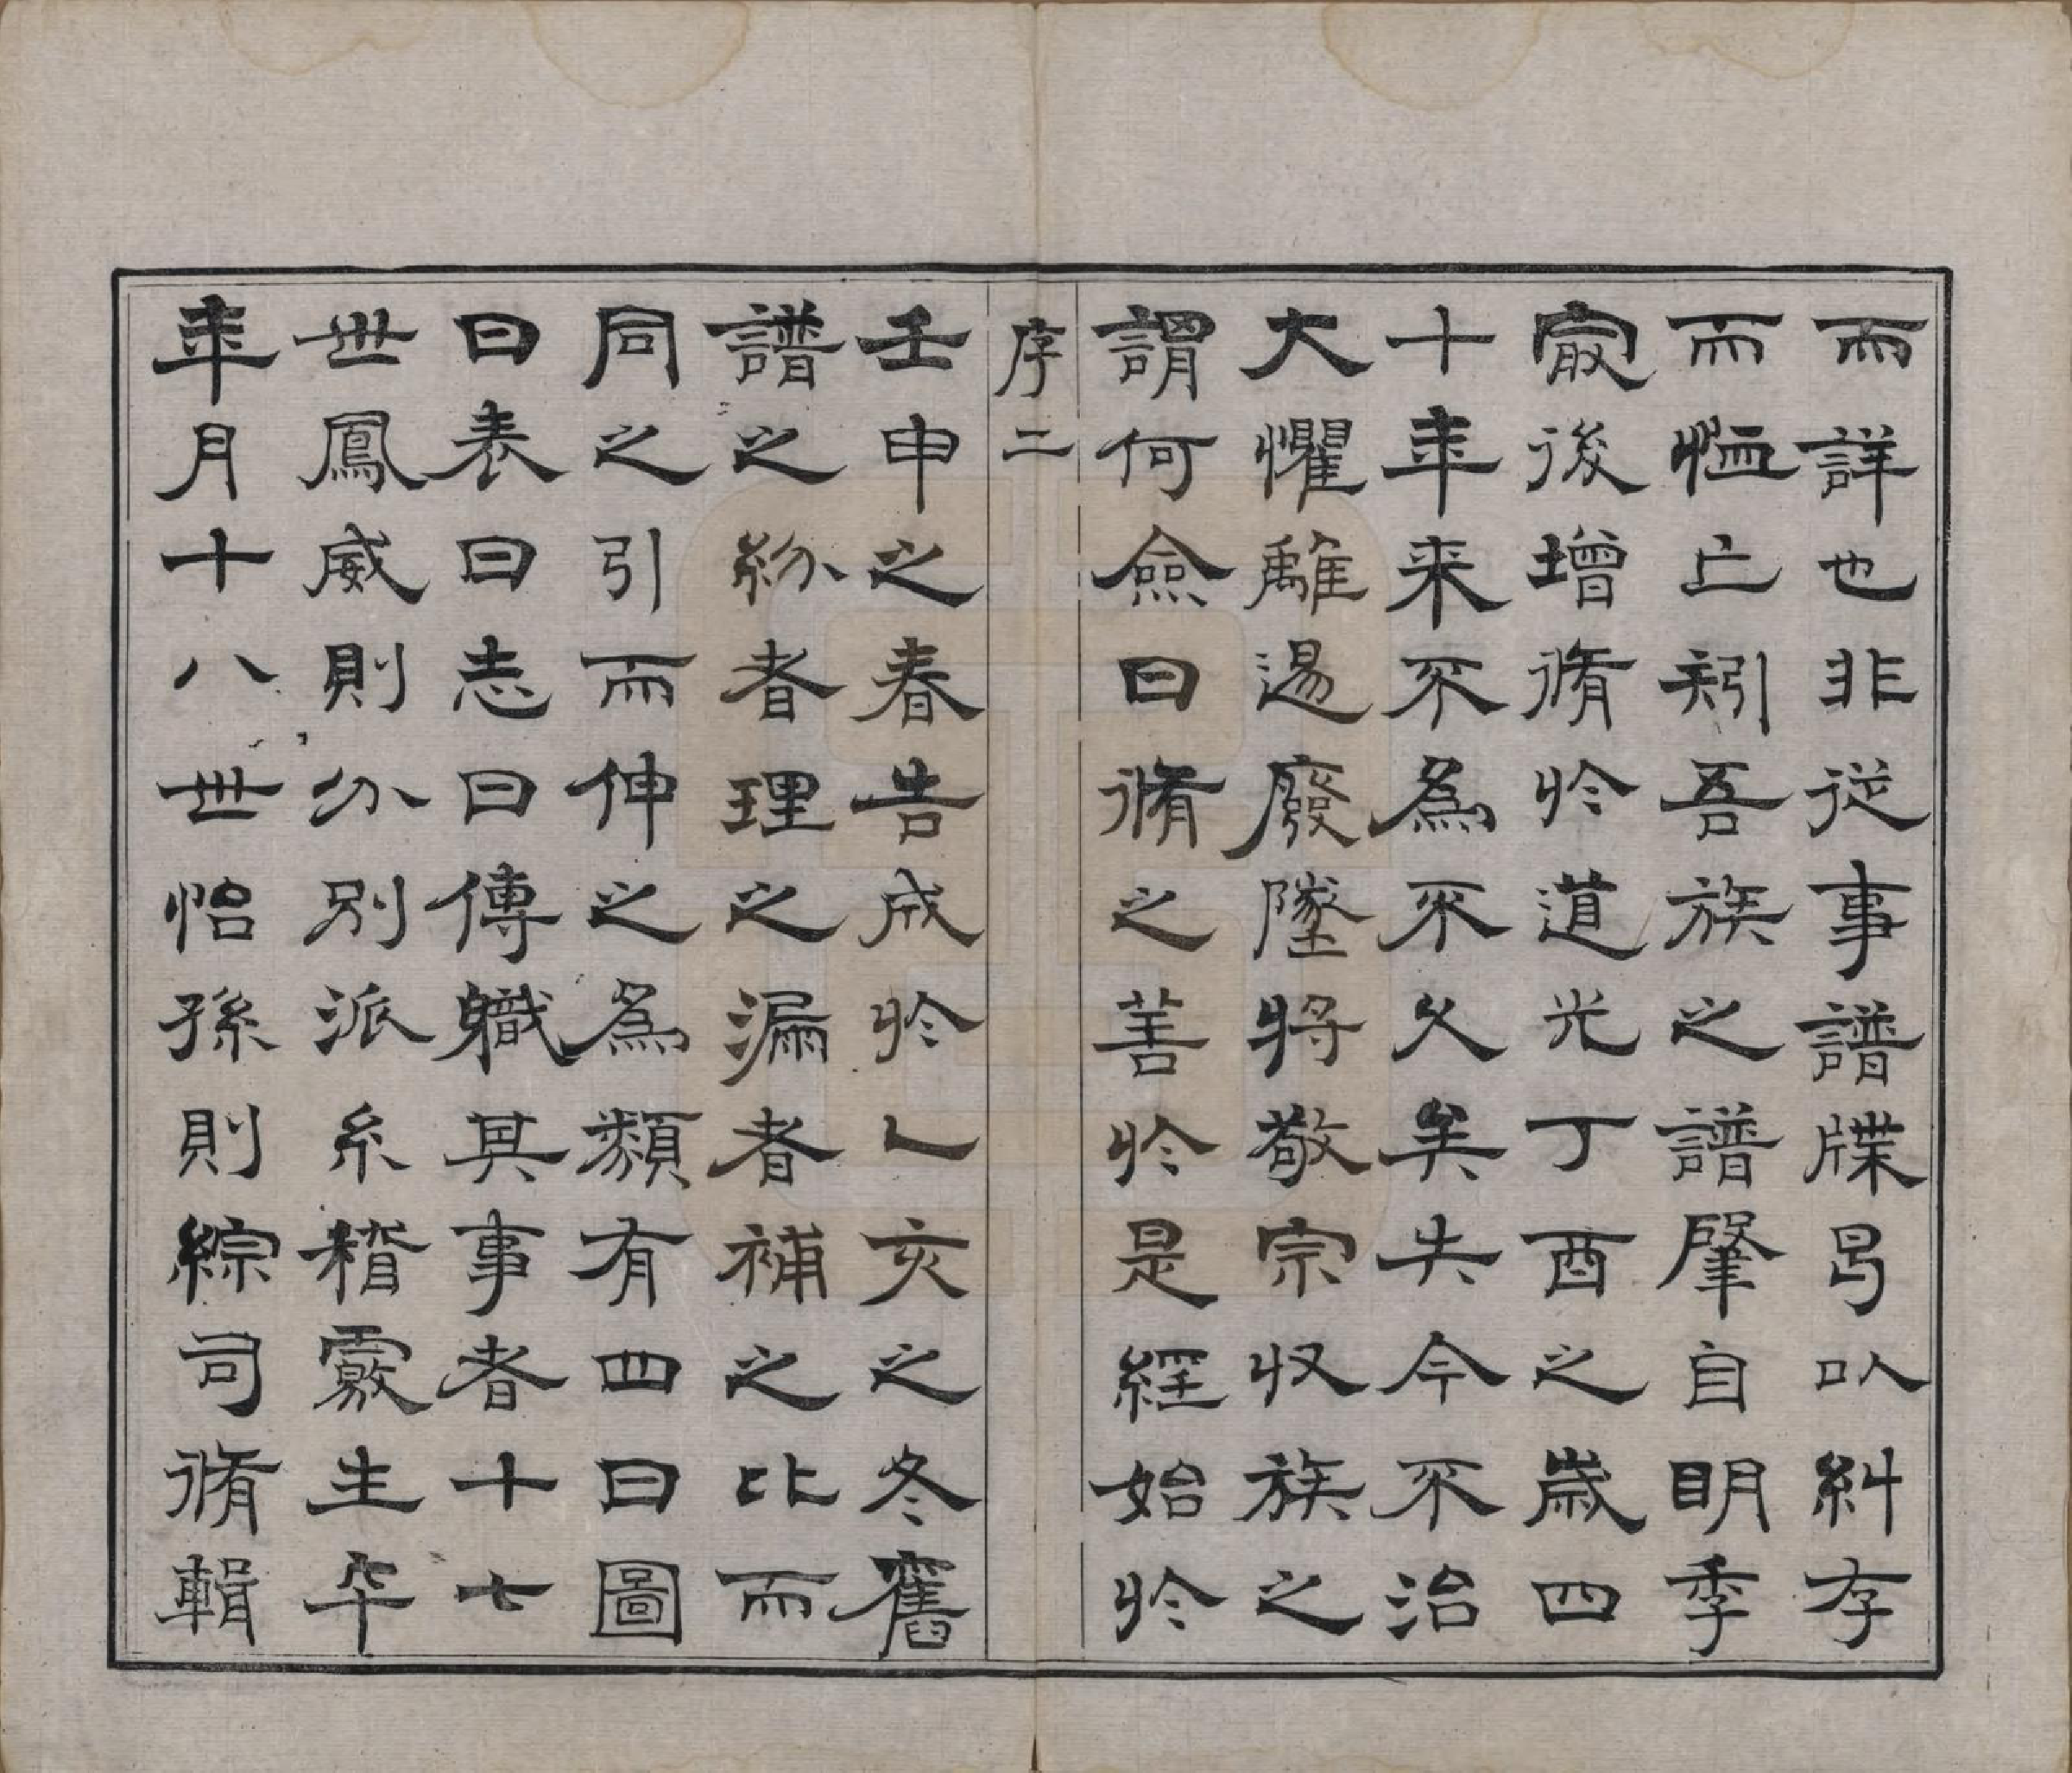 而詳也非從事譜牒曷以糾存
而恤亡矧吾族之譜肇自明季
冣後增脩於道光丁酉之歲四
十年來不為不久矣失今不治
大懼離逷廢墜將敬宗收族之
謂何僉曰脩之善於是經始於
序二
壬申之春告成於乙亥之冬舊
譜之紛者理之漏者補之比而
同之引而伸之為類有四曰圖
曰表曰志曰傳職其事者十七
世鳳威則分別派系稽覈生卒
年月十八世怡孫則綜司脩輯